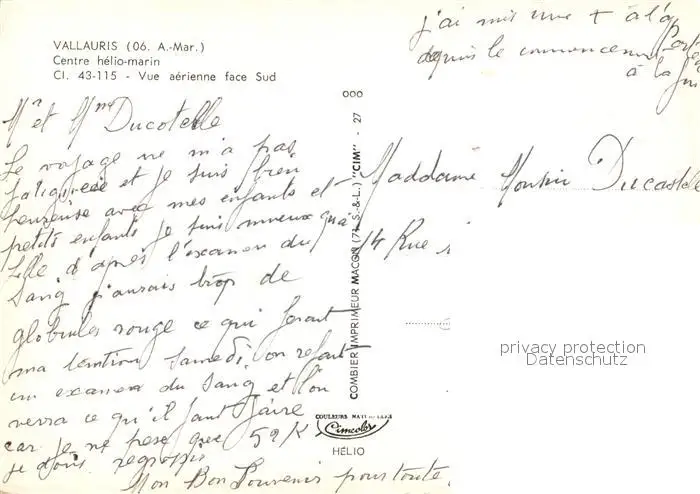 VALLAURIS (06. A.-Mar.)
Centre hélio-marin
Cl. 43-115 - Vue aérienne face Sud
j'ai mis une + à l'
depuis le commencement
à la
Mr et Mme Ducotelle
Le voyage ne m'a pas
fatiguée et je suis bien
heureuse avec mes enfants et
petits enfants je suis mieux qu'a
Lille d'après l'examen du
Sang j'aurais trop de
globules rouge ce qui ferait
ma tention Samedi on refait
un examen du Sang et l'on
verra ce qu'il faut faire
car je ne pese que 52 K
je dois
Mon Bon Souvenir pour toute
COMBIER IMPRIMEUR MACON (71. S.-&-L.) "CIM" - 27
Maddame Monsieur Ducastelle
14 Rue
COULEURS NATURELLES
Cimcolor
HÉLIO
privacy protection
Datenschutz